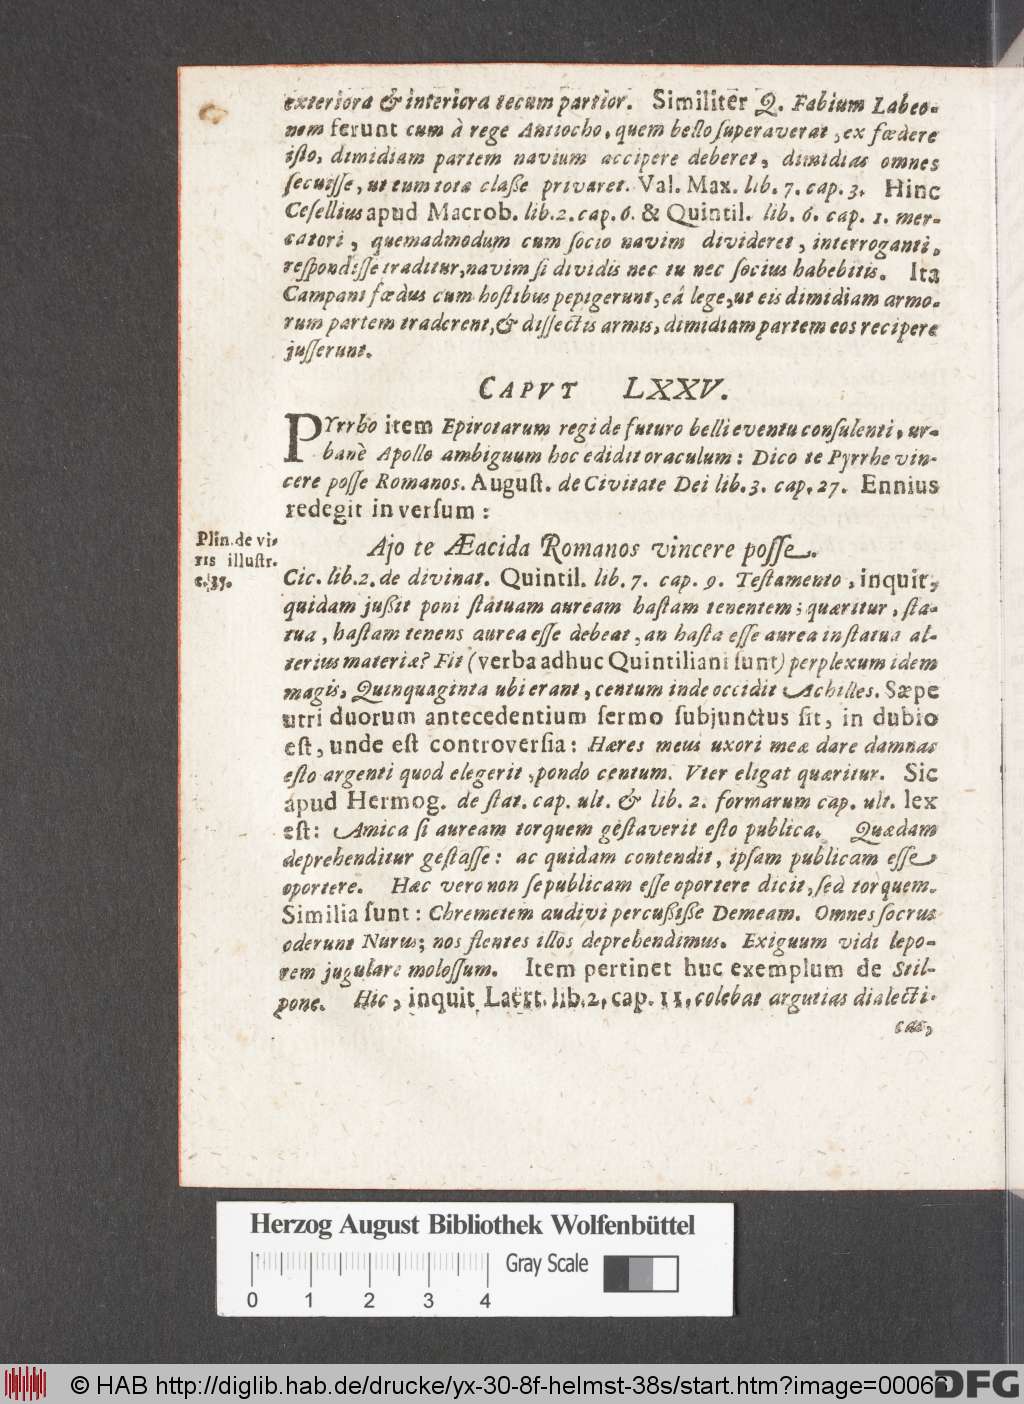 exteriora & interiora tecum partior. Similiter Q. Fabium Labeo-
nem ferunt cum à rege Antiocho, quem bello ſuperaverat, ex fœdere
iſto, dimidiam partem navium accipere deberet, dimidias omnes
ſecuiſſe, ut eum tota claſſe privaret. Val. Max. lib. 7. cap. 3. Hinc
Ceſellius apud Macrob. lib. 2. cap. 6. & Quintil. lib. 6. cap. 1. mer-
catori, quemadmodum cum ſocio navim divideret, interroganti,
reſpondiſſe traditur, navim ſi dividis nec tu nec ſocius habebitis. Ita
Campani fœdus cum hoſtibus pepigerunt, eâ lege, ut eis dimidiam armo-
rum partem traderent, & diſſectis armis, dimidiam partem eos recipere
juſſerunt.
CAPVT LXXV.
PYrrho item Epirotarum regi de futuro belli eventu conſulenti, ur-
banè Apollo ambiguum hoc edidit oraculum: Dico te Pyrrhe vin-
cere poſſe Romanos. Auguſt. de Civitate Dei lib. 3. cap. 27. Ennius
redegit in verſum:
Plin. de vi-
ris illuſtr.
c. 35.
Ajo te Æacida Romanos vincere poſſe.
Cic. lib. 2. de divinat. Quintil. lib. 7. cap. 9. Teſtamento, inquit,
quidam jußit poni ſtatuam auream haſtam tenentem; quæritur, ſta-
tua, haſtam tenens aurea eſſe debeat, an haſta eſſe aurea in ſtatua al-
terius materiæ? Fit (verba adhuc Quintiliani ſunt) perplexum idem
magis, Quinquaginta ubi erant, centum inde occidit Achilles. Sæpe
utri duorum antecedentium ſermo ſubjunctus ſit, in dubio
eſt, unde eſt controverſia: Hæres meus uxori meæ dare damnas
eſto argenti quod elegerit, pondo centum. Vter eligat quæritur. Sic
apud Hermog. de ſtat. cap. ult. & lib. 2. formarum cap. ult. lex
eſt: Amica ſi auream torquem geſtaverit eſto publica. Quædam
deprehenditur geſtaſſe: ac quidam contendit, ipſam publicam eſſe
oportere. Hæc vero non ſe publicam eſſe oportere dicit, ſed torquem.
Similia ſunt: Chremetem audivi percußiße Demeam. Omnes ſocrus
oderunt Nurus; nos flentes illos deprehendimus. Exiguum vidi lepo-
rem jugulare moloſſum. Item pertinet huc exemplum de Stil-
pone. Hic, inquit Laërt. lib. 2. cap. 11. colebat argutias dialecti-
cas,
Herzog August Bibliothek Wolfenbüttel
Gray Scale
0 1 2 3 4
© HAB http://diglib.hab.de/drucke/yx-30-8f-helmst-38s/start.htm?image=00066
DFG